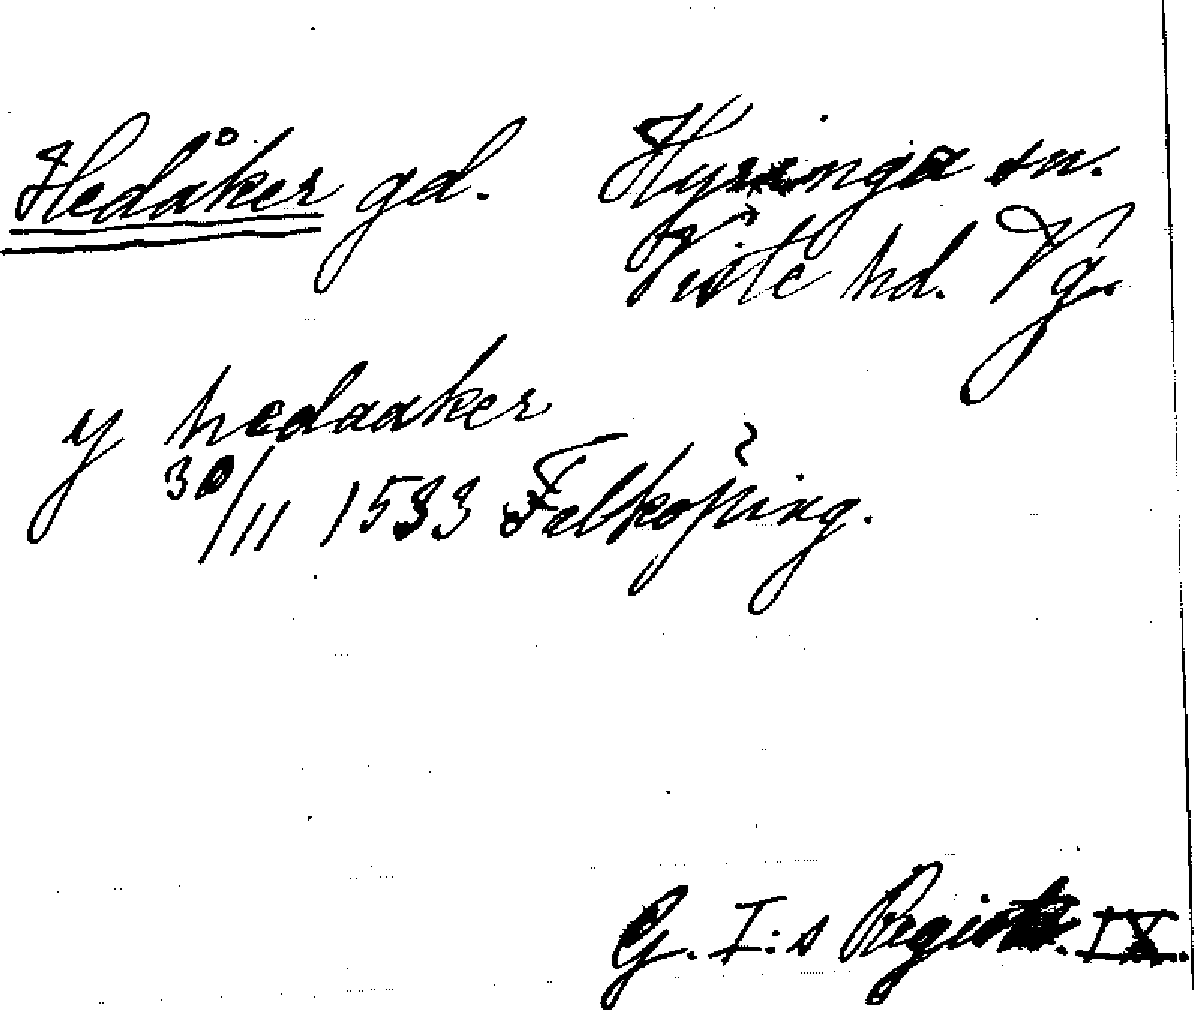 Hedåker gd. Hyringa sn.
Viste hd. Vg.
y hedaaker
30/11 1533 Felköping.
G. I:s Registr. IX.